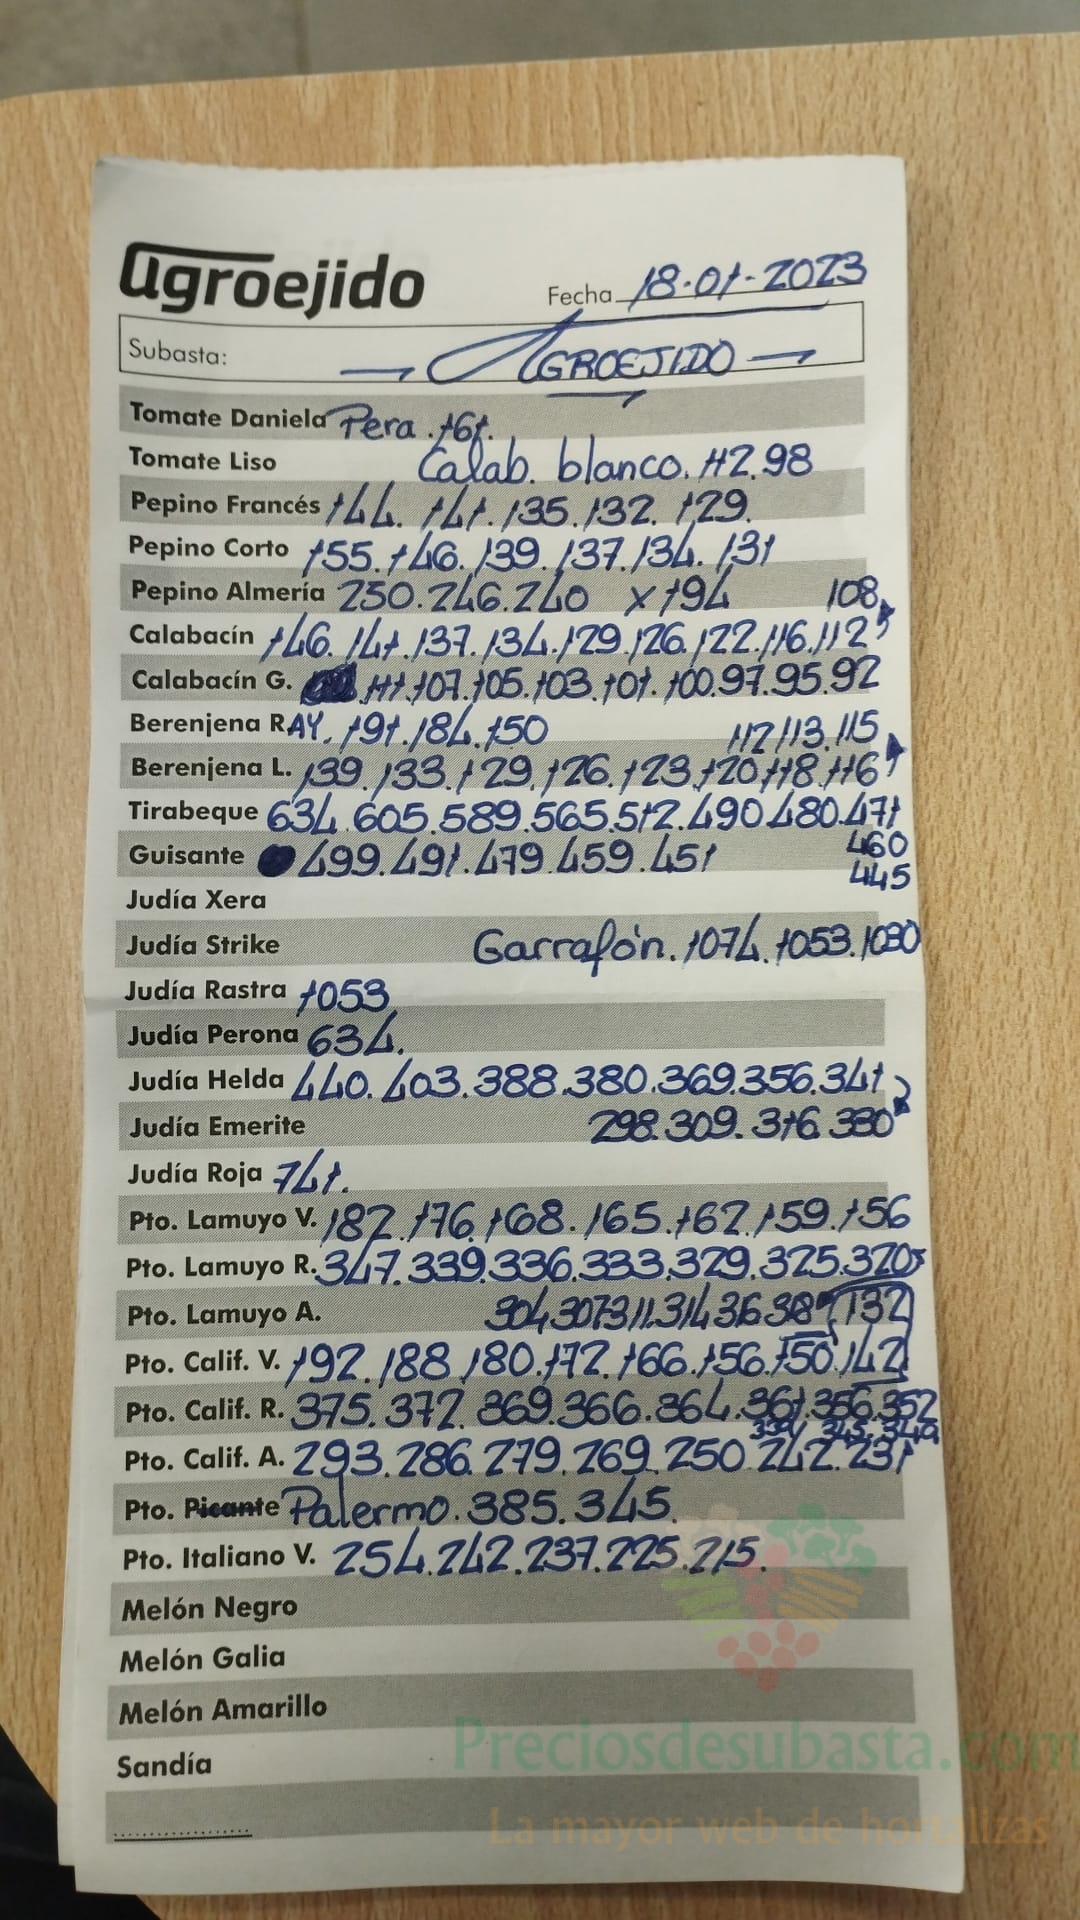 agroejido
Fecha 18-01-2023
Subasta: AGROEJIDO
Tomate Daniela Pera. 161.
Tomate Liso Calab. blanco. 112. 98
Pepino Francés 144. 141. 135. 132. 129.
Pepino Corto 155. 146. 139. 137. 134. 131
Pepino Almería 250. 246. 240 x 194 108
Calabacín 146. 141. 137. 134. 129. 126. 122. 116. 112
Calabacín G. 111. 107. 105. 103. 101. 100. 97. 95. 92
Berenjena RAY. 191. 184. 150 112 113. 115
Berenjena L. 139. 133. 129. 126. 123. 120 118. 116
Tirabeque 634. 605. 589. 565. 512. 490 480. 471
Guisante 499. 491. 479. 459. 451 460
445
Judía Xera
Judía Strike Garrafón. 1074. 1053. 1030
Judía Rastra 1053
Judía Perona 634.
Judía Helda 440. 403. 388. 380. 369. 356. 341
Judía Emerite 298. 309. 316. 330
Judía Roja 741.
Pto. Lamuyo V. 182. 176. 168. 165. 162. 159. 156
Pto. Lamuyo R. 347. 339. 336. 333. 329. 325. 320
Pto. Lamuyo A. 304. 307 311. 314 316 132
Pto. Calif. V. 192. 188. 180. 172. 166. 156. 150. 142
Pto. Calif. R. 375. 372. 369. 366. 364. 361. 356. 352
345. 349
Pto. Calif. A. 293. 286. 279. 269. 250 242. 231
Pto. Picante Palermo. 385. 345.
Pto. Italiano V. 254. 242. 237. 225. 215.
Melón Negro
Melón Galia
Melón Amarillo
Preciosdesubasta.com
Sandía
La mayor web de hortalizas